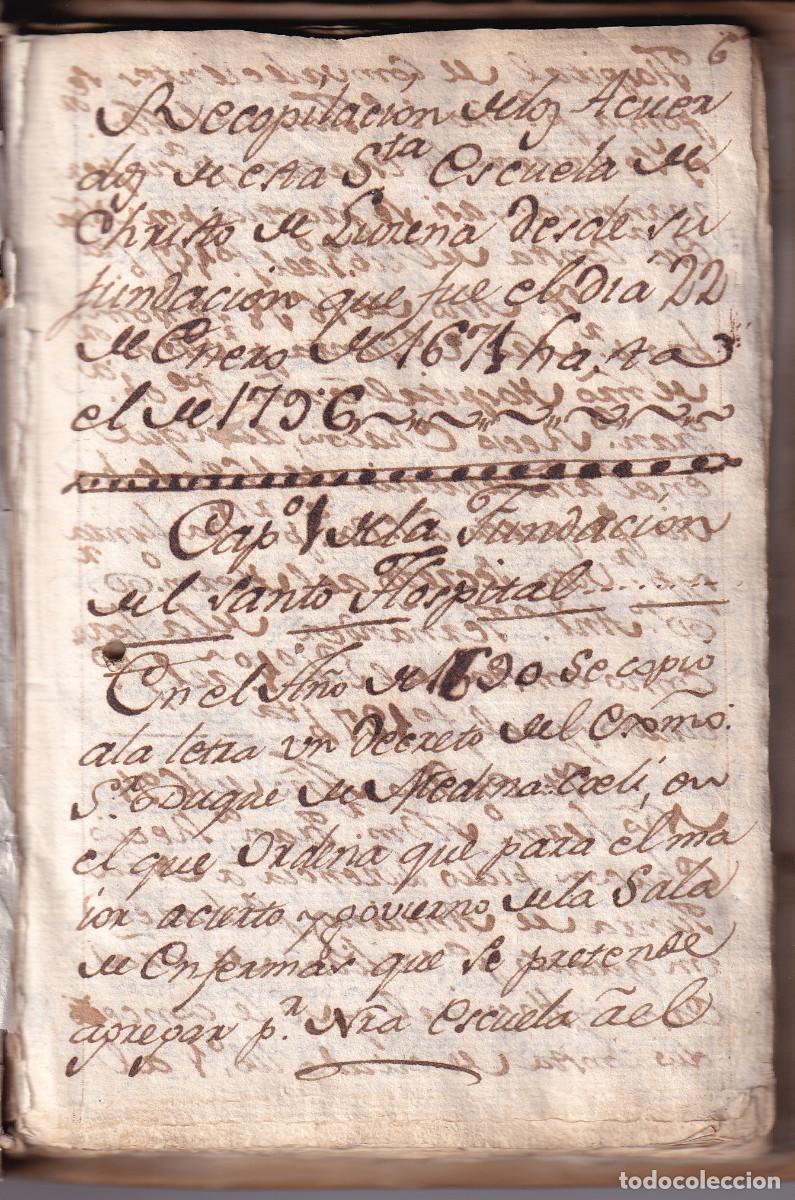 6
Recopilacion de los Acuer
dos de esta Sta Escuela de
Christo de Luzena desde su
fundacion que fue el dia 22
de Enero de 1671 hasta
el de 1796
Capo 1 de la Fundacion
del Santo Hospital
En el Año de 1690 se copio
a la letra vn Decreto del Exmo:
Sr. Duque de Medina-Coeli, en
el que Ordena que para el ma
ior acierto y govierno de la Sala
de Enfermas que se pretende
agregar pr. Nra Escuela âel
todocoleccion